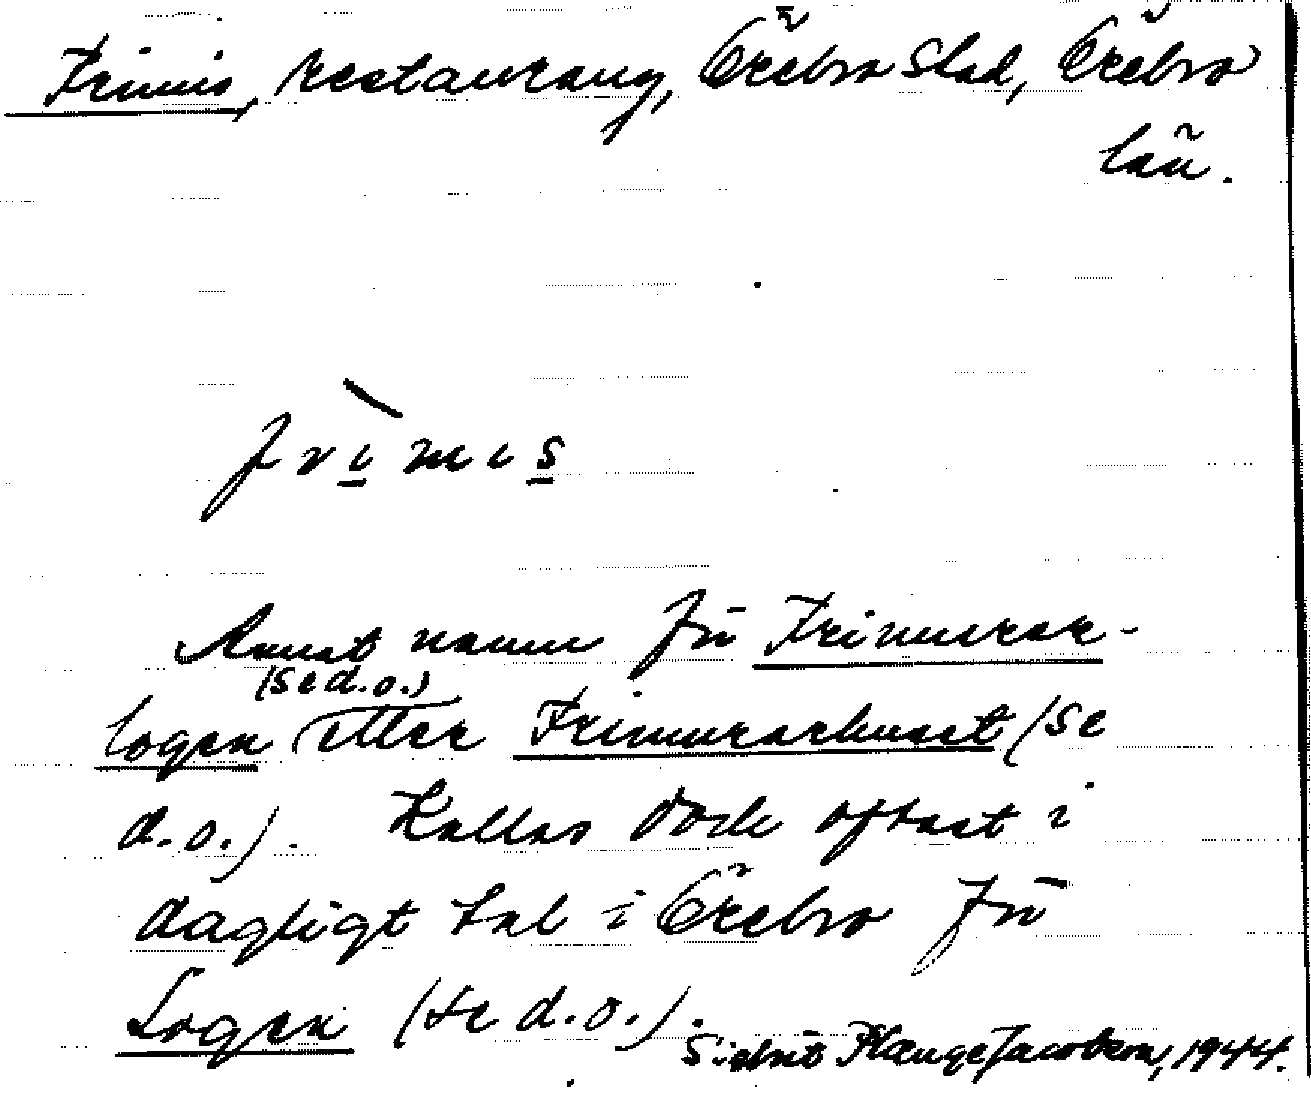 Frimis, restaurang, Örebro stad, Örebro
län.
frìmis
Annat namn för Frimurar-
(se d.o.)
logen eller Frimurarhuset (se
d.o.). Kallas dock oftast i
dagligt tal i Örebro för
Logen (se d.o.).
Plænge Jacobson, 1944.